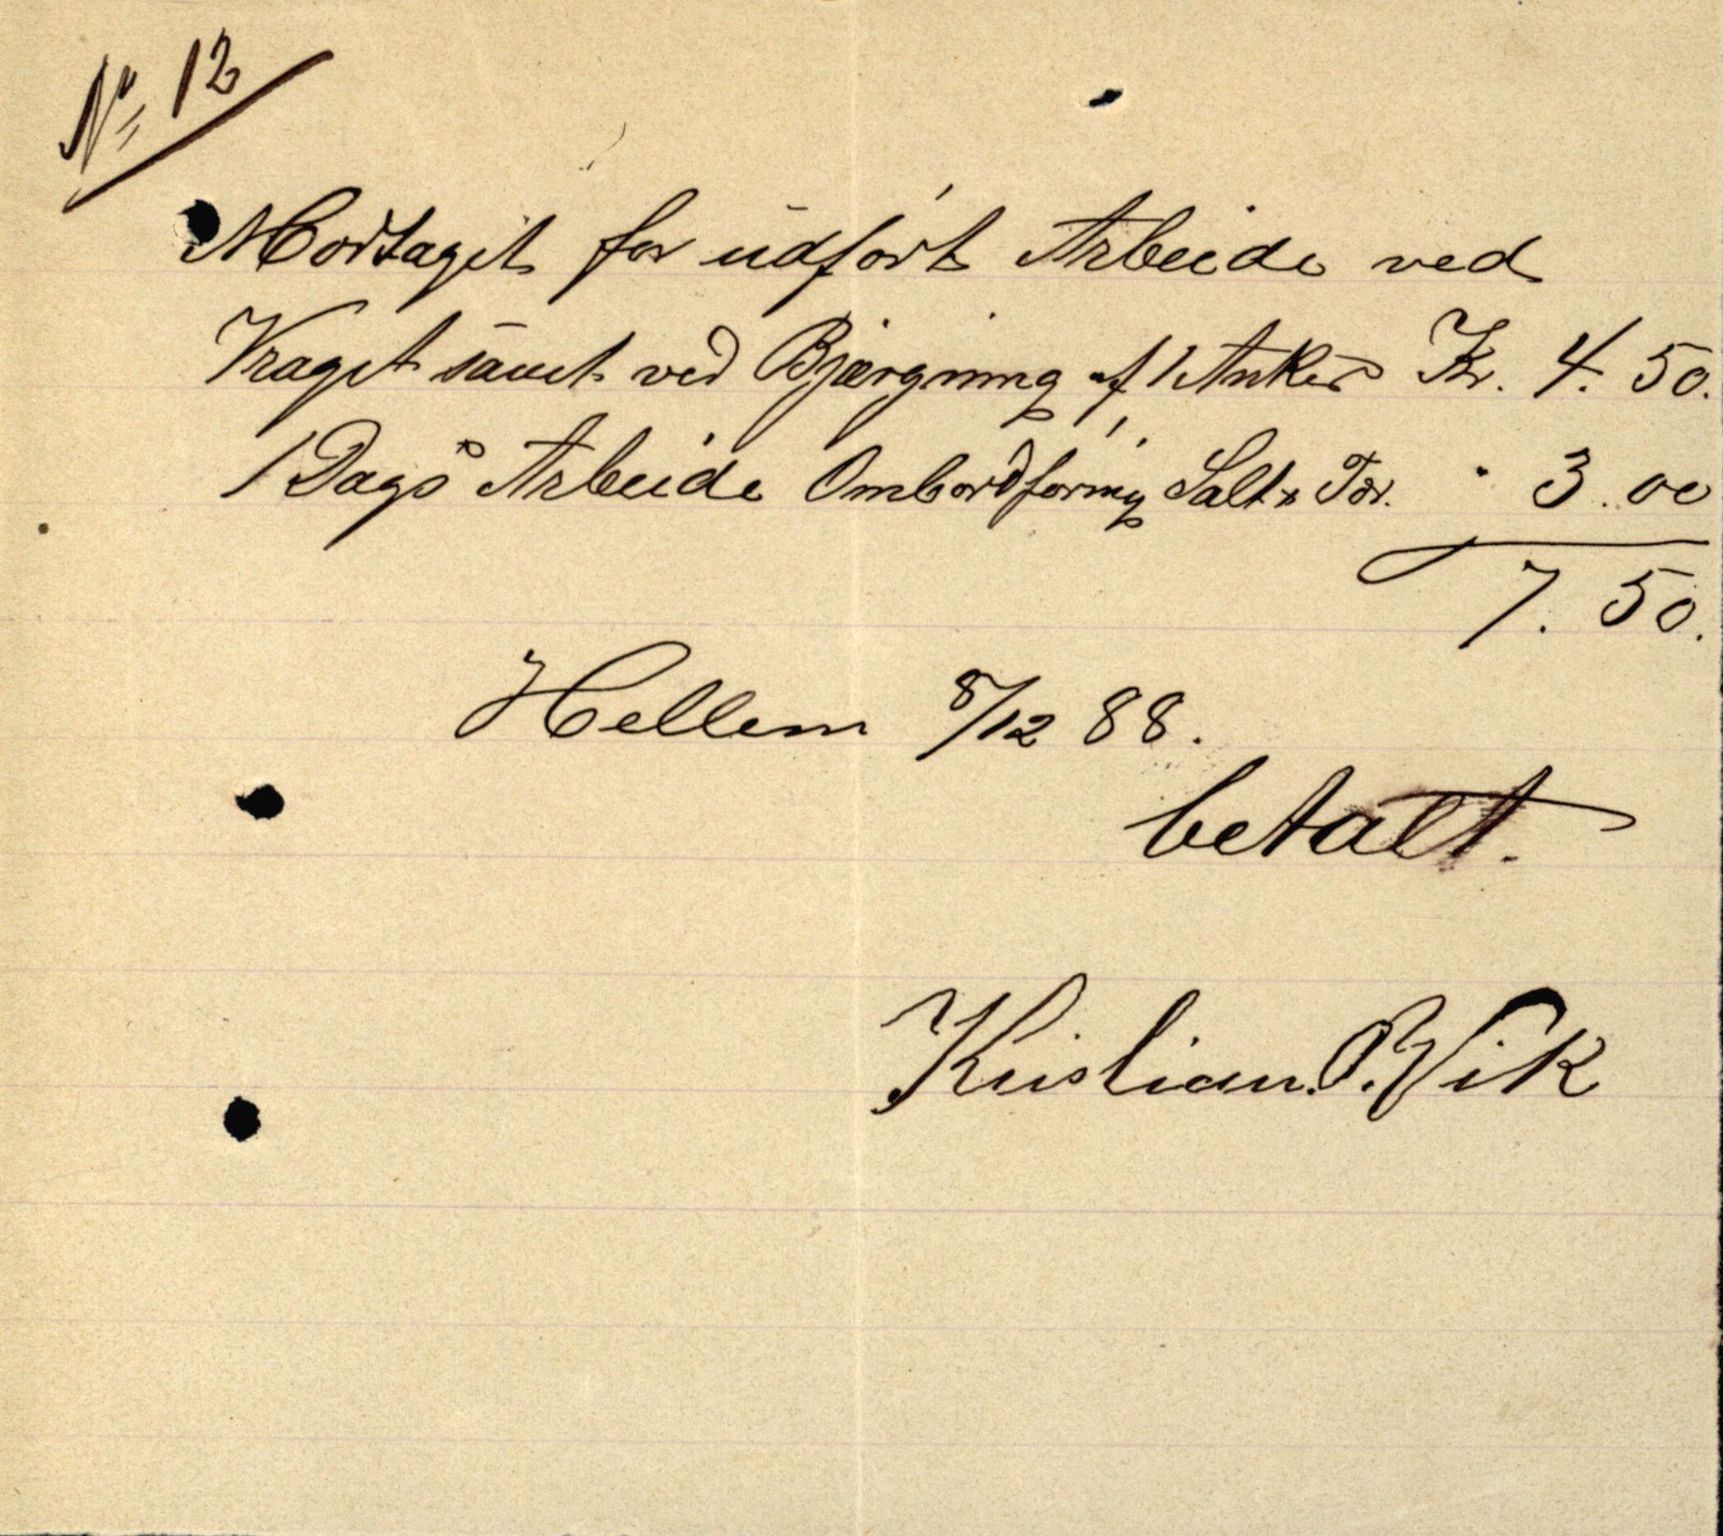 No 12
Modtaget for udført Arbeide ved
Vraget samt ved Bjærgning af 1 Anker Kr. 4. 50.
1 Dags Arbeide Ombordføring Salt & Tør. " 3. 00
7. 50.
Hellem 8/12 88.
betalt.
Kristian O. Vik